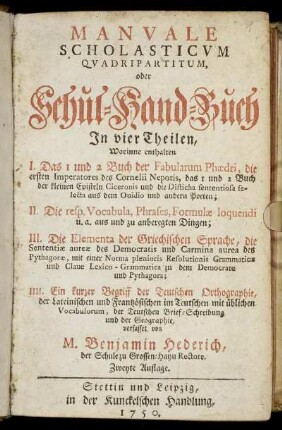 MANVALE
SCHOLASTICVM
QVADRIPARTITUM,
oder
Schul-Hand-Buch
In vier Theilen,
Worinne enthalten
I. Das 1 und 2 Buch der Fabularum Phædri, die
ersten Imperatores des Cornelii Nepotis, das 1 und 2 Buch
der kleinen Episteln Ciceronis und die Disticha sententiosa se-
lecta aus dem Ovidio und andern Poeten;
II. Die resp. Vocabula, Phrases, Formulæ loquendi
u. a. aus und zu anberegten Dingen;
III. Die Elementa der Griechischen Sprache, die
Sententiæ aureæ des Democratis und Carmina aurea des
Pythagoræ, mit einer Norma plenioris Resolutionis Grammaticæ
und Claue Lexico-Grammatica zu dem Democrate
und Pythagora;
IIII. Ein kurzer Begriff der Teutschen Orthographie,
der Lateinischen und Frantzösischen im Teutschen mit üblichen
Vocabulorum, der Teutschen Brief-Schreibung
und der Geographie,
verfasset von
M. Benjamin Hederich,
der Schule zu Grossen-Hayn Rectore.
Zweyte Auflage.
Stettin und Leipzig,
in der Kunckelschen Handlung,
1750.